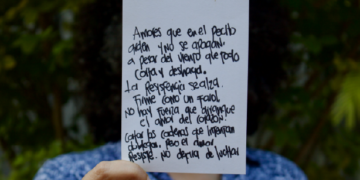 Amores que en el pecho
arden y no se apagan
a pesar del viento que todo
corta y deshoja.
La resistencia se alza
Firme como un farol
no hay fuerza que arranque
el amor del corazón!
las cadenas
Pero el amor
Resiste. no deja de luchar